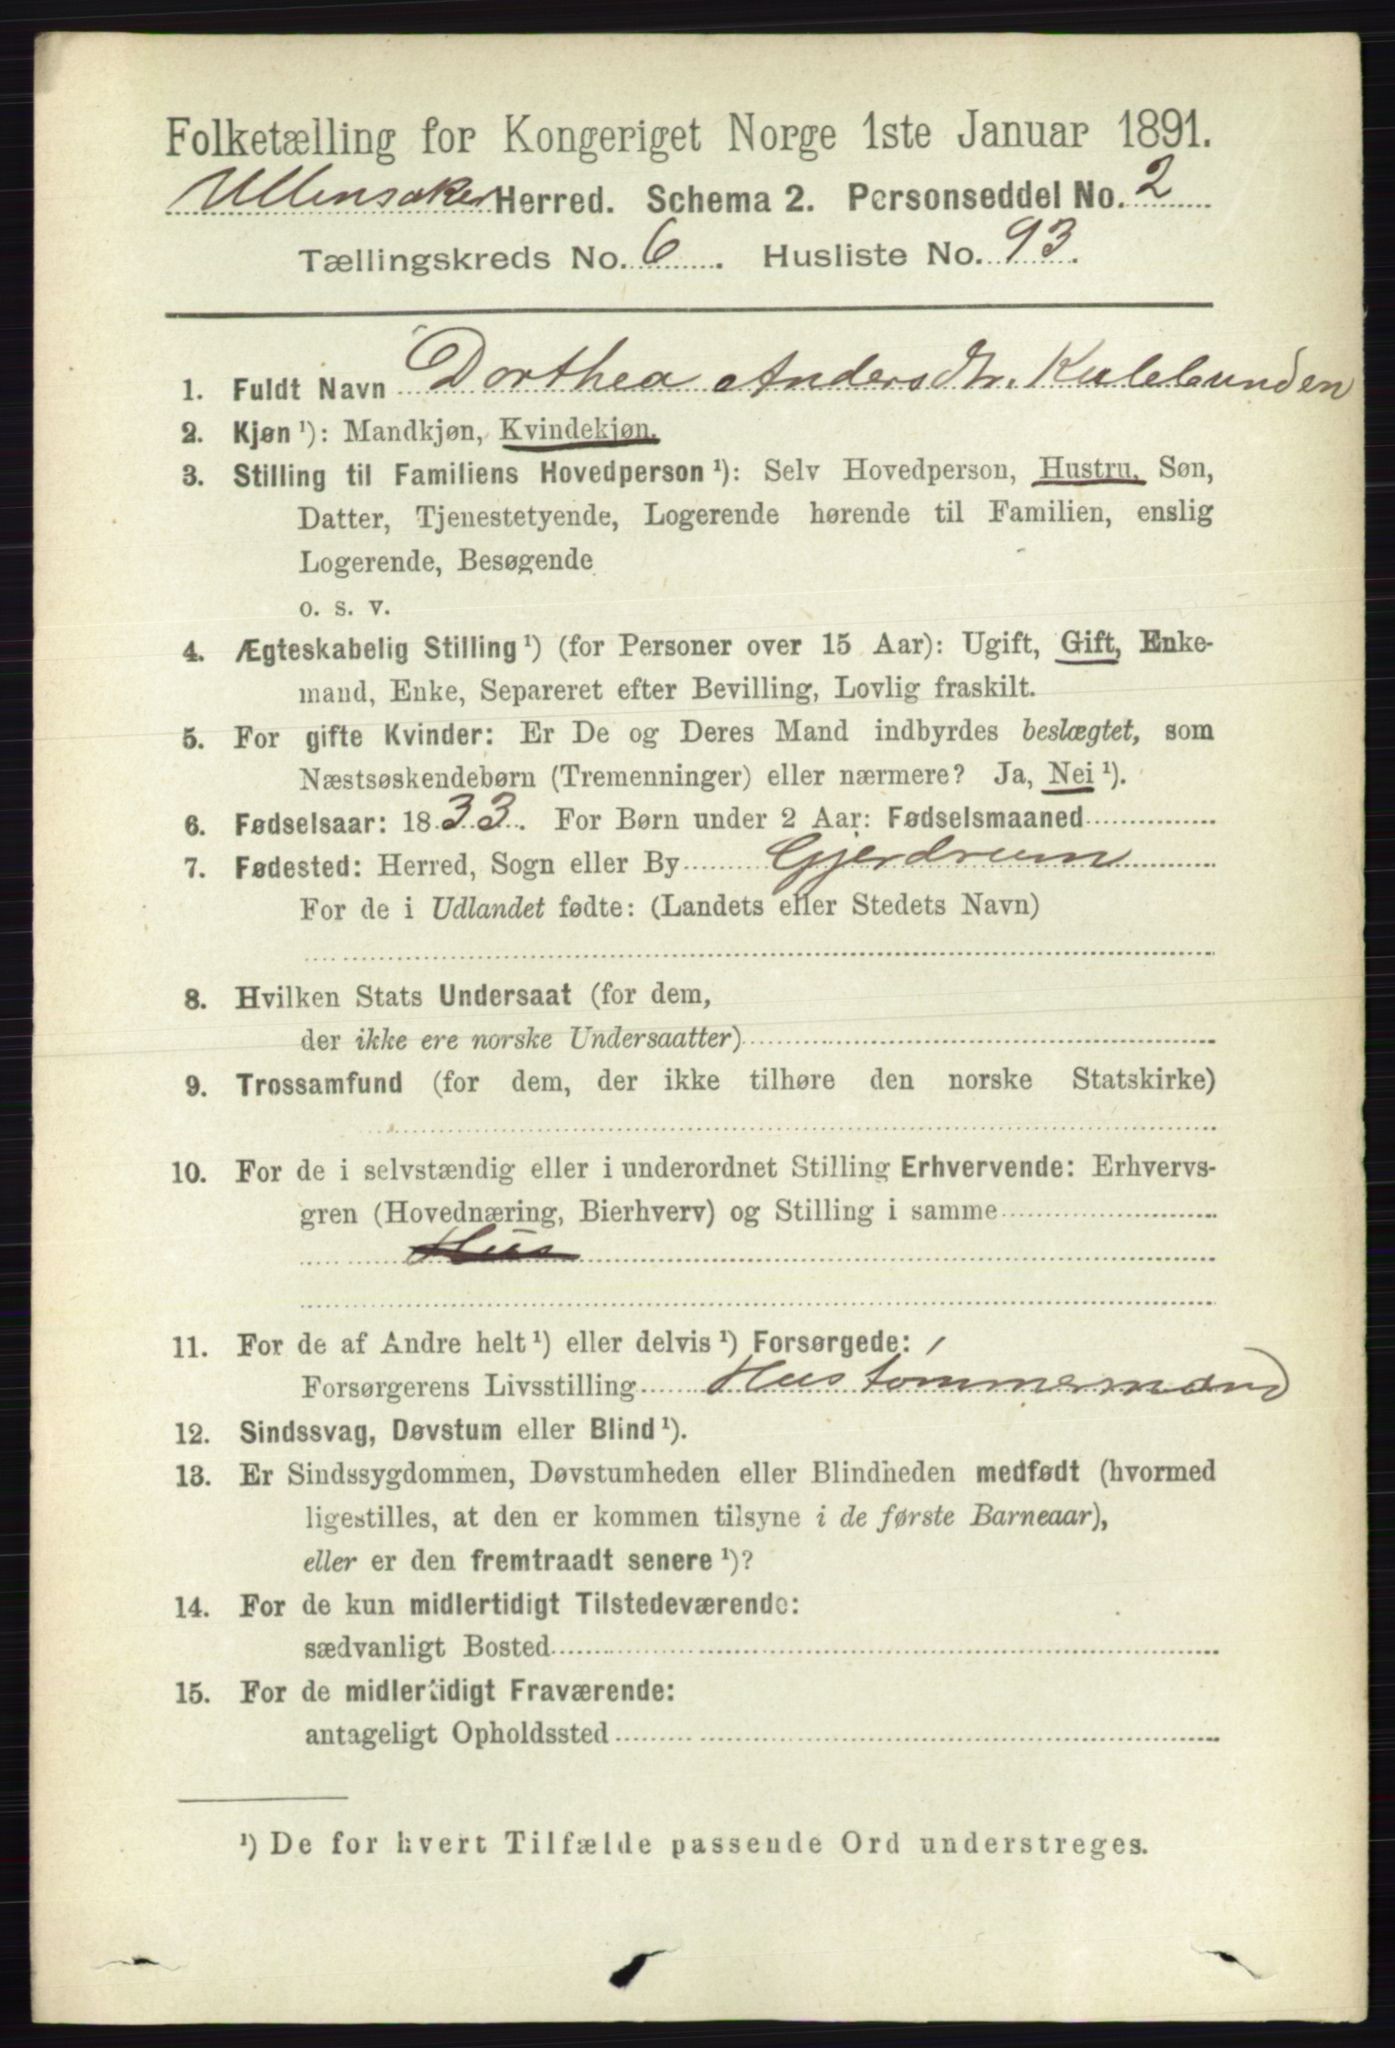 Folketælling for Kongeriget Norge 1ste Januar 1891.
Ullensaker Herred. Schema 2. Personseddel No. 2
Tællingskreds No. 6. Husliste No. 93.
1. Fuldt Navn Dorthea Andersdtr. Kulebunden
2. Kjøn ¹): Mandkjøn, Kvindekjøn.
3. Stilling til Familiens Hovedperson ¹): Selv Hovedperson, Hustru, Søn,
Datter, Tjenestetyende, Logerende hørende til Familien, enslig
Logerende, Besøgende
o. s. v.
4. Ægteskabelig Stilling ¹) (for Personer over 15 Aar): Ugift, Gift, Enke-
mand, Enke, Separeret efter Bevilling, Lovlig fraskilt.
5. For gifte Kvinder: Er De og Deres Mand indbyrdes beslægtet, som
Næstsøskendebørn (Tremenninger) eller nærmere? Ja, Nei ¹).
6. Fødselsaar: 1833. For Børn under 2 Aar: Fødselsmaaned
7. Fødested: Herred, Sogn eller By Gjerdrum
For de i Udlandet fødte: (Landets eller Stedets Navn)
8. Hvilken Stats Undersaat (for dem,
der ikke ere norske Undersaatter)
9. Trossamfund (for dem, der ikke tilhøre den norske Statskirke)
10. For de i selvstændig eller i underordnet Stilling Erhvervende: Erhvervs-
gren (Hovednæring, Bierhverv) og Stilling i samme
Hus
11. For de af Andre helt ¹) eller delvis ¹) Forsørgede:
Forsørgerens Livsstilling Hustømmermand
12. Sindssvag, Døvstum eller Blind ¹).
13. Er Sindssygdommen, Døvstumheden eller Blindheden medfødt (hvormed
ligestilles, at den er kommen tilsyne i de første Barneaar),
eller er den fremtraadt senere ¹)?
14. For de kun midlertidigt Tilstedeværende:
sædvanligt Bosted
15. For de midlertidigt Fraværende:
antageligt Opholdssted
¹) De for hvert Tilfælde passende Ord understreges.